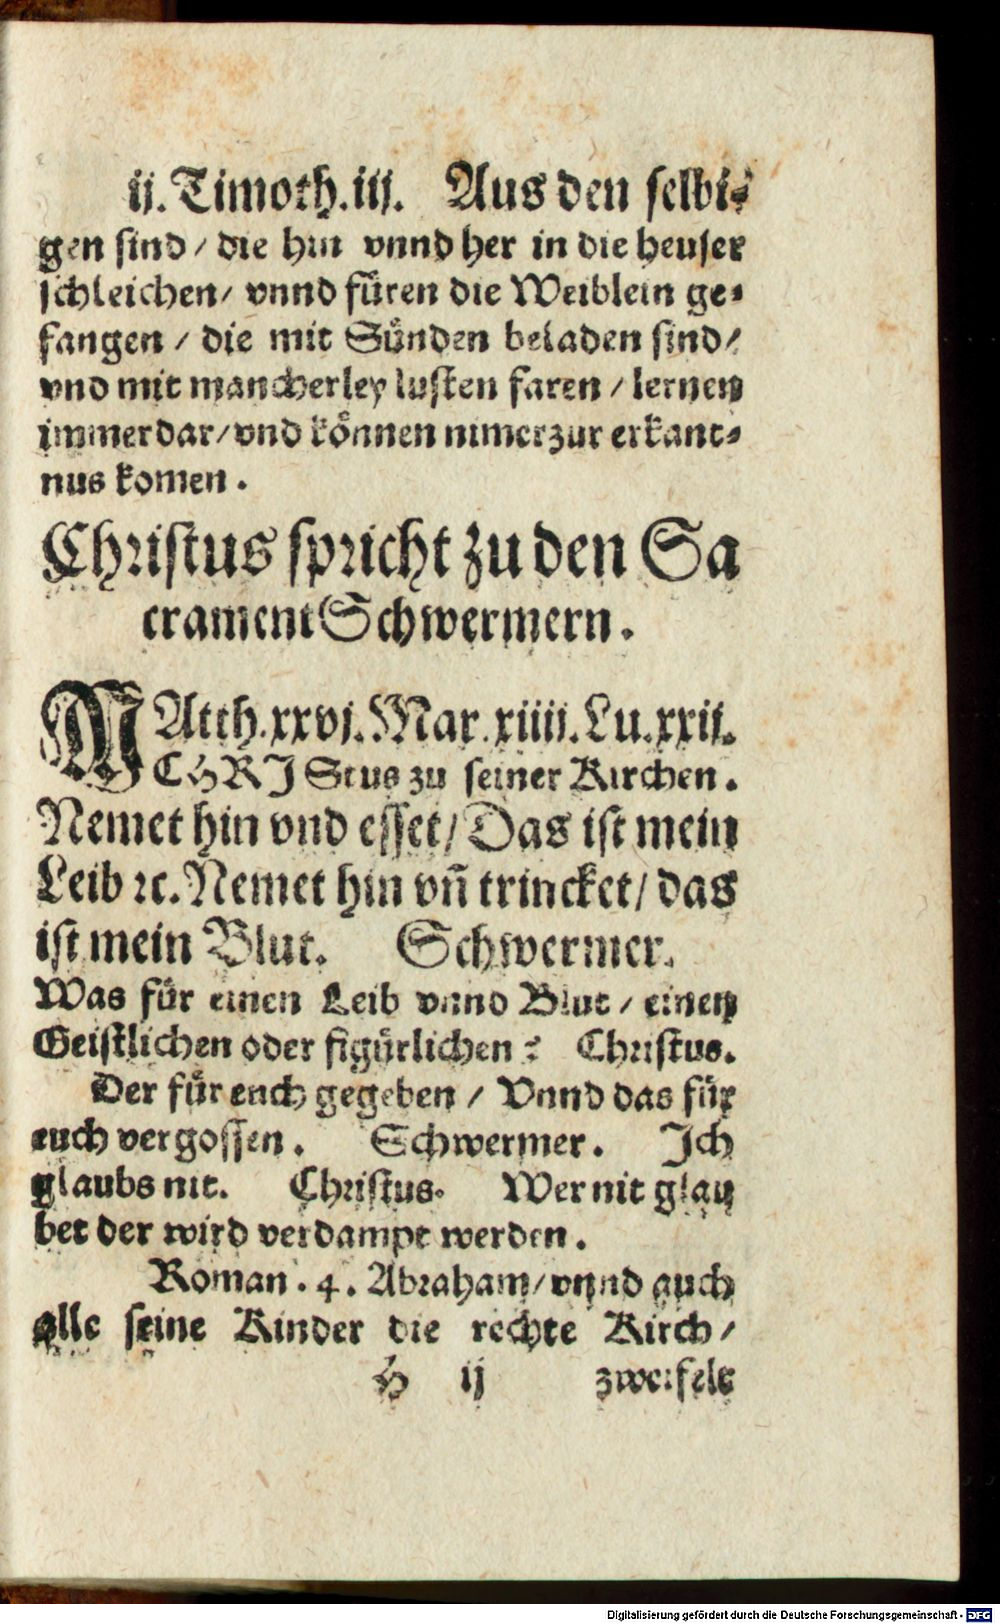 ij. Timoth. iij. Aus den selbi⸗
gen sind / die hin vnnd her in die heuser
schleichen / vnnd füren die Weiblein ge⸗
fangen / die mit Sünden beladen sind /
vnd mit mancherley lusten faren / lernen
immerdar / vnd können nimer zur erkant⸗
nus komen.
Christus spricht zu den Sa
crament Schwermern.
MAtth. xxvj. Mar. xiiij. Lu. xxij.
CHRIStus zu seiner Kirchen.
Nemet hin vnd esset / Das ist mein
Leib ꝛc. Nemet hin vñ trincket / das
ist mein Blut. Schwermer.
Was für einen Leib vnnd Blut / einen
Geistlichen oder figürlichen? Christus.
Der für euch gegeben / Vnnd das für
euch vergossen. Schwermer. Ich
glaubs nit. Christus. Wer nit glau
bet der wird verdampt werden.
Roman. 4. Abraham / vnnd auch
alle seine Kinder die rechte Kirch /
H ij zweifelt
Digitalisierung gefördert durch die Deutsche Forschungsgemeinschaft - DFG